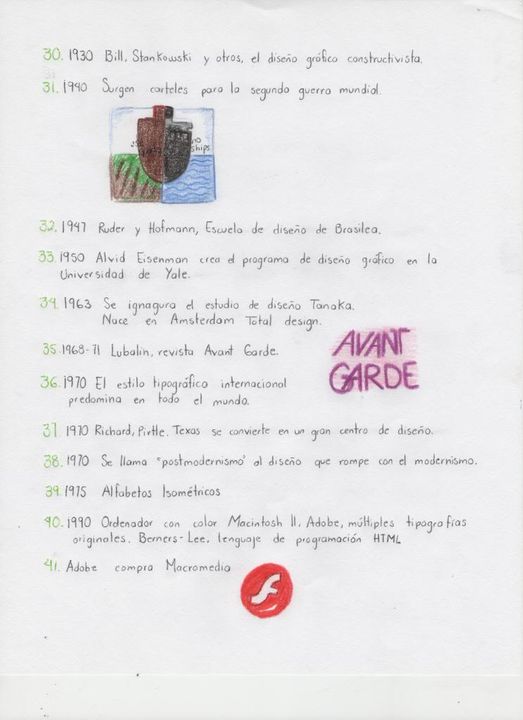 30. 1930 Bill, Stankowski y otros, el diseño gráfico constructivista.
31. 1940 Surgen carteles para la segunda guerra mundial.
ships
32. 1947 Ruder y Hofmann, Escuela de diseño de Brasilea.
33. 1950 Alvid Eisenman crea el programa de diseño gráfico en la
Universidad de Yale.
34. 1963 Se ignagura el estudio de diseño Tanaka.
Nace en Amsterdam Total design.
35. 1968-71 Lubalin, revista Avant Garde.
AVANT
GARDE
36. 1970 El estilo tipográfico internacional
predomina en todo el mundo.
37 1970 Richard, Pirtle. Texas se convierte en un gran centro de diseño.
38. 1970 Se llama "postmodernismo" al diseño que rompe con el modernismo.
39. 1975 Alfabetos Isométricos
40. 1990 Ordenador con color Macintosh II. Adobe, múltiples tipografías
originales. Berners-Lee, lenguaje de programación HTML
41. Adobe compra Macromedia